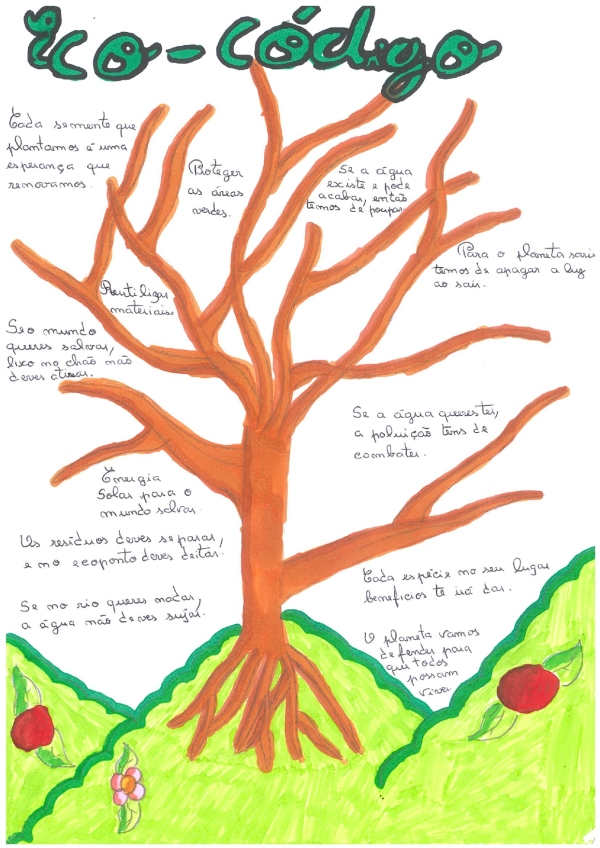 Eco-código
Cada semente que
plantamos é uma
esperança que
renovamos.
Proteger
as áreas
verdes.
Se a água
existe e pode
acabar, então
temos de poupar
Para o planeta sorrir
temos de apagar a luz
ao sair.
Reutilizar
materiais.
Se o mundo
queres salvar,
lixo no chão não
deves atirar.
Se a água queres ter,
a poluição tens de
combater.
Energia
Solar para o
mundo salvar
Os resíduos deves separar,
e no ecoponto deves deitar.
Cada espécie no seu lugar
benefícios te irá dar.
Se no rio queres nadar,
a água não deves sujar.
O planeta vamos
defender para
que todos
possam
viver.